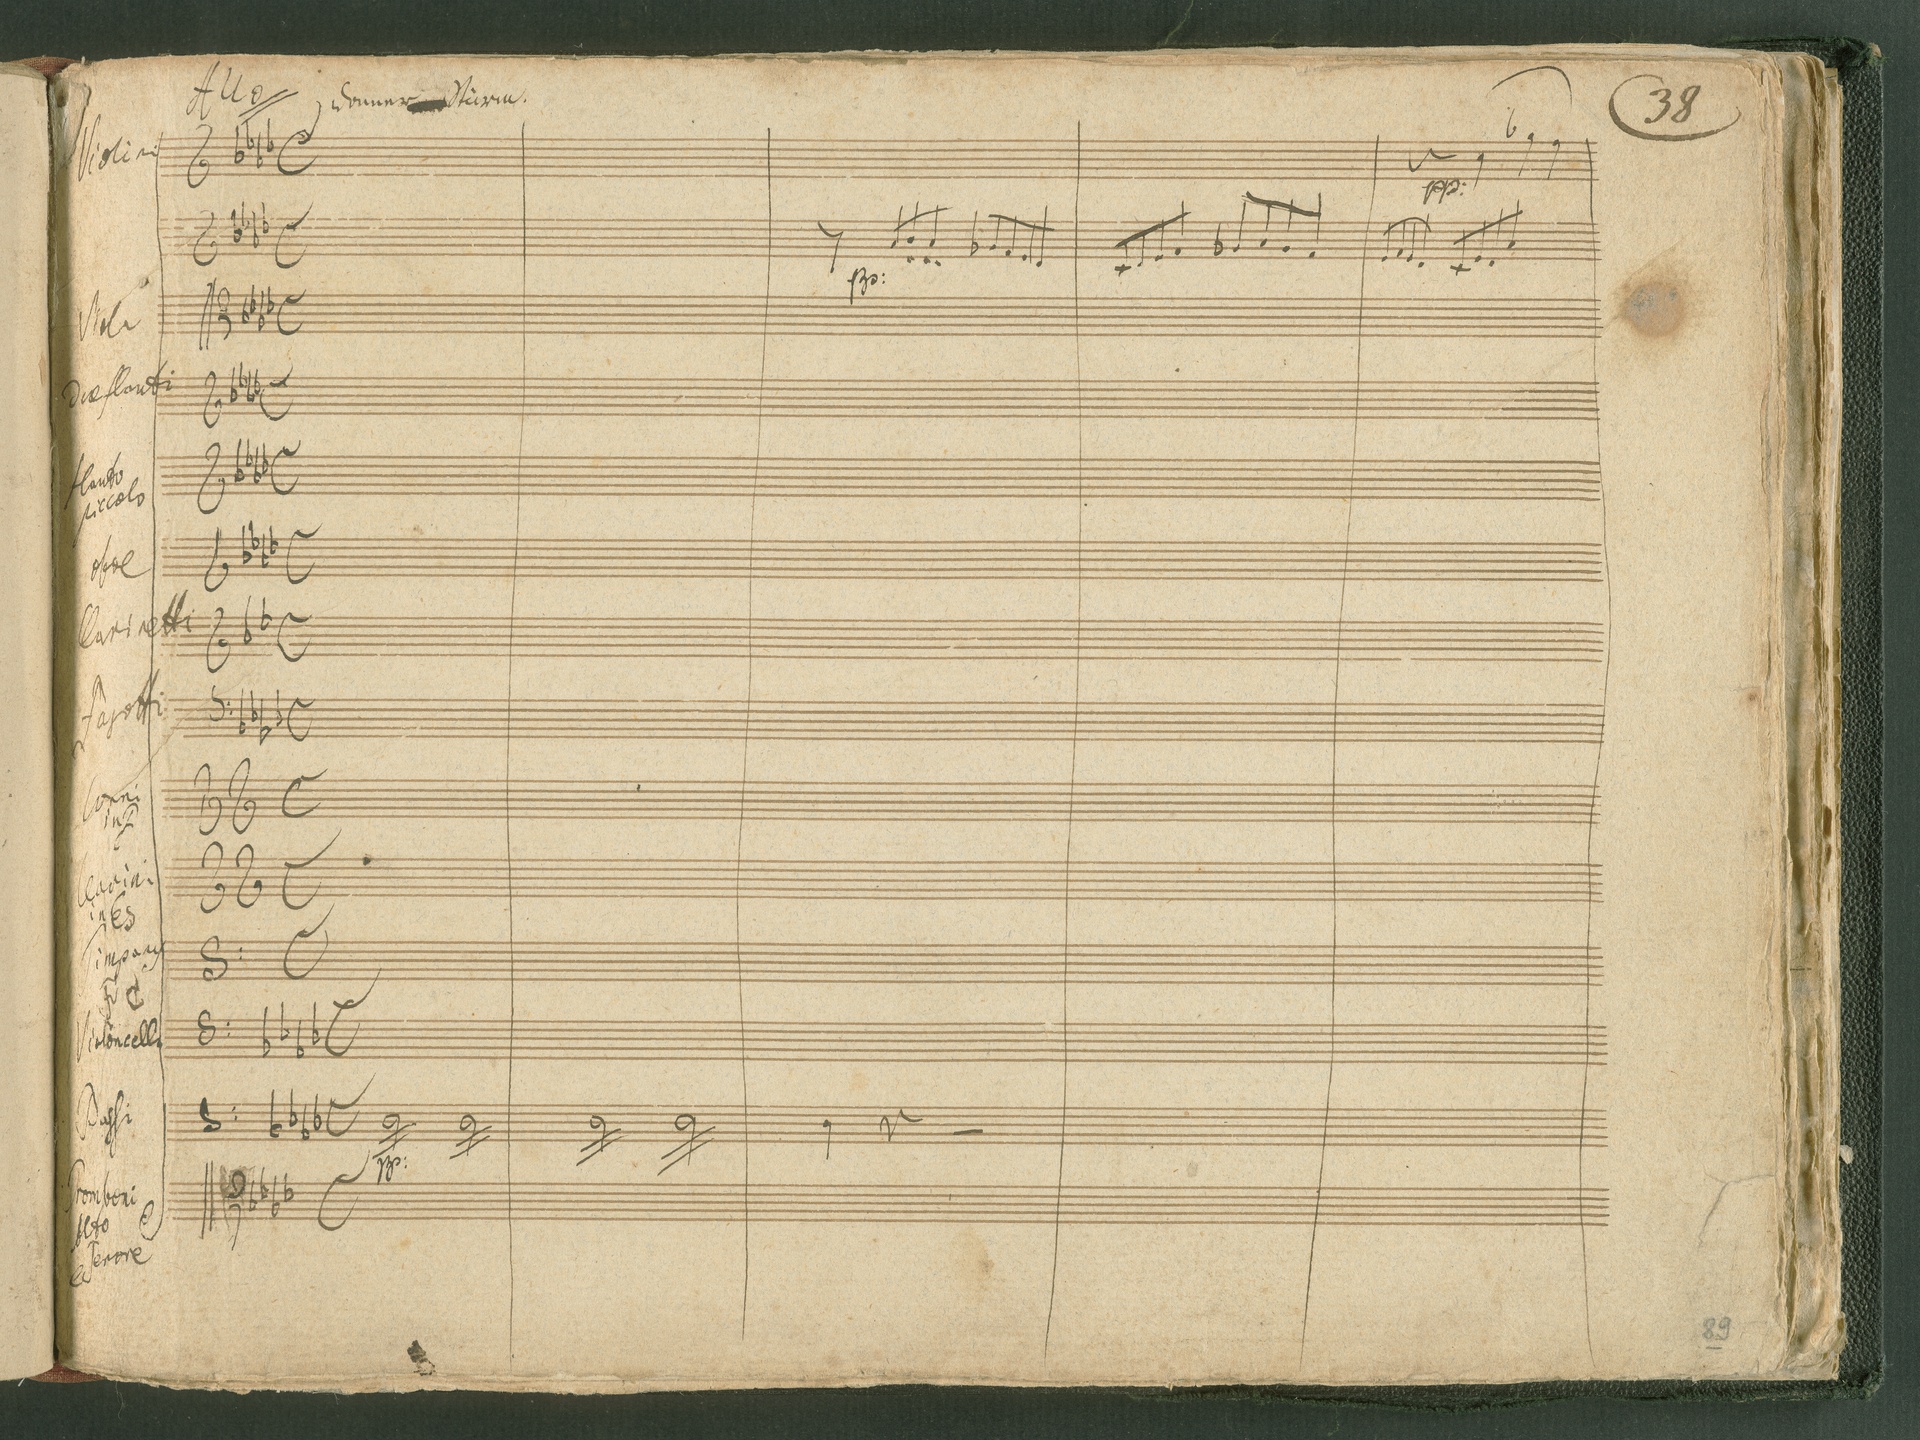 Allo Donner Sturm.
38
Violini
pp:
pp:
Viola
due flauti
flauto
piccolo
oboe
Clarinetti
Fagotti
Corni
in F
Clarini
in Es
Timpany
F C
Violoncello
Bassi
pp:
Tromboni
Alto
e Tenore
89